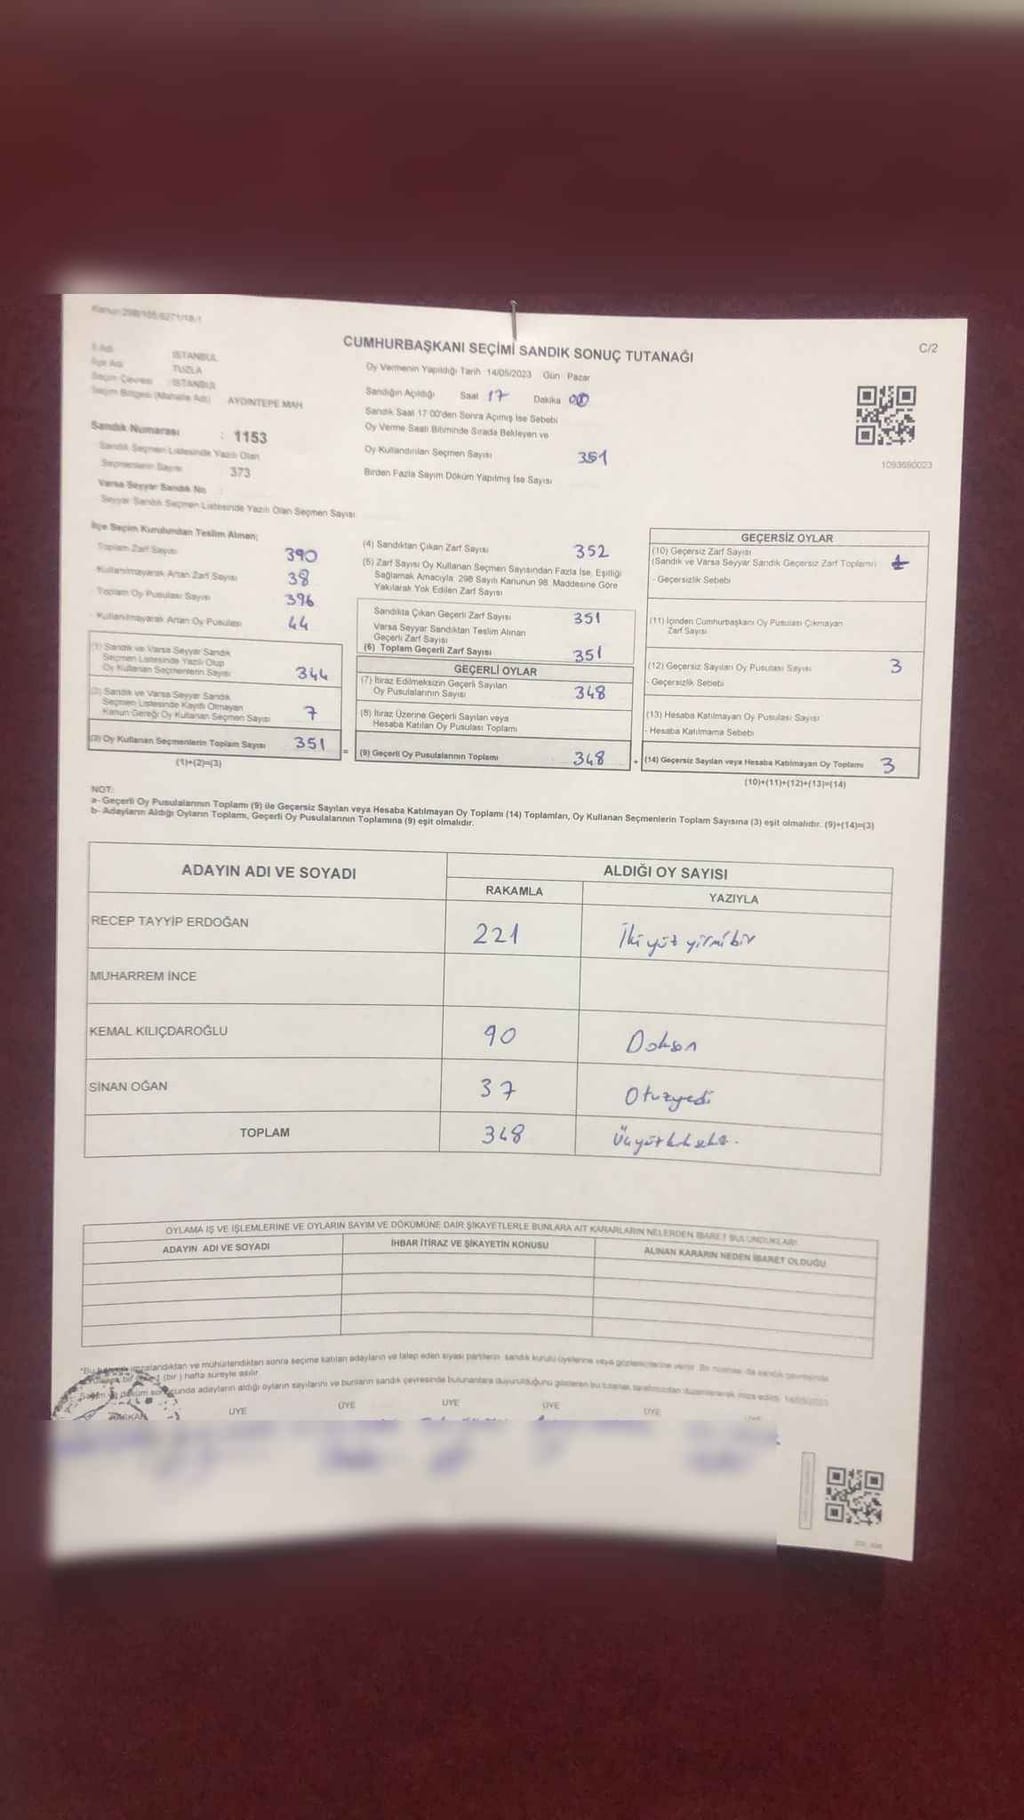 Kanun 298/105,6271/18/1
CUMHURBAŞKANI SEÇİMİ SANDIK SONUÇ TUTANAĞI
C/2
İl Adı İSTANBUL
İlçe Adı TUZLA
Seçim Çevresi İSTANBUL
Seçim Bölgesi (Mahalle Adı) AYDINTEPE MAH
Sandık Numarası : 1153
Sandık Seçmen Listesinde Yazılı Olan
Seçmenlerin Sayısı 373
Varsa Seyyar Sandık No
Seyyar Sandık Seçmen Listesinde Yazılı Olan Seçmen Sayısı
Oy Vermenin Yapıldığı Tarih 14/05/2023 Gün Pazar
Sandığın Açıldığı Saat 17 Dakika 00
Sandık Saat 17:00'den Sonra Açmış İse Sebebi
Oy Verme Saati Bitiminde Sırada Bekleyen ve
Oy Kullandırılan Seçmen Sayısı 351
Birden Fazla Sayım Döküm Yapılmış İse Sayısı
1093690023
İlçe Seçim Kurulundan Teslim Alınan;
Toplam Zarf Sayısı 390
- Kullanılmayarak Artan Zarf Sayısı 38
Toplam Oy Pusulası Sayısı 396
- Kullanılmayarak Artan Oy Pusulası 44
(1) Sandık ve Varsa Seyyar Sandık
Seçmen Listesinde Yazılı Olup
Oy Kullanan Seçmenlerin Sayısı 344
(2) Sandık ve Varsa Seyyar Sandık
Seçmen Listesinde Kayıtlı Olmayan
Kanun Gereği Oy Kullanan Seçmen Sayısı 7
(3) Oy Kullanan Seçmenlerin Toplam Sayısı 351
(1)+(2)=(3)
(4) Sandıktan Çıkan Zarf Sayısı 352
(5) Zarf Sayısı Oy Kullanan Seçmen Sayısından Fazla İse, Eşitliği
Sağlamak Amacıyla, 298 Sayılı Kanunun 98. Maddesine Göre
Yakılarak Yok Edilen Zarf Sayısı
Sandıkta Çıkan Geçerli Zarf Sayısı 351
Varsa Seyyar Sandıktan Teslim Alınan
Geçerli Zarf Sayısı
(6) Toplam Geçerli Zarf Sayısı 351
GEÇERLİ OYLAR
(7) İtiraz Edilmeksizin Geçerli Sayılan
Oy Pusulalarının Sayısı 348
(8) İtiraz Üzerine Geçerli Sayılan veya
Hesaba Katılan Oy Pusulası Toplamı
= (9) Geçerli Oy Pusulalarının Toplamı 348
GEÇERSİZ OYLAR
(10) Geçersiz Zarf Sayısı
(Sandık ve Varsa Seyyar Sandık Geçersiz Zarf Toplamı)
- Geçersizlik Sebebi
(11) İçinden Cumhurbaşkanı Oy Pusulası Çıkmayan
Zarf Sayısı
(12) Geçersiz Sayılan Oy Pusulası Sayısı 3
- Geçersizlik Sebebi
(13) Hesaba Katılmayan Oy Pusulası Sayısı
- Hesaba Katılmama Sebebi
+ (14) Geçersiz Sayılan veya Hesaba Katılmayan Oy Toplamı 3
(10)+(11)+(12)+(13)=(14)
NOT:
a- Geçerli Oy Pusulalarının Toplamı (9) ile Geçersiz Sayılan veya Hesaba Katılmayan Oy Toplamı (14) Toplamları, Oy Kullanan Seçmenlerin Toplam Sayısına (3) eşit olmalıdır. (9)+(14)=(3)
b- Adayların Aldığı Oyların Toplamı, Geçerli Oy Pusulalarının Toplamına (9) eşit olmalıdır.
ADAYIN ADI VE SOYADI ALDIĞI OY SAYISI
RAKAMLA YAZIYLA
RECEP TAYYİP ERDOĞAN 221 İkiyüz yirmibir
MUHARREM İNCE
KEMAL KILIÇDAROĞLU 90 Doksan
SİNAN OĞAN 37 Otuzyedi
TOPLAM 348 Üçyüzkırksekiz.
OYLAMA İŞ VE İŞLEMLERİNE VE OYLARIN SAYIM VE DÖKÜMÜNE DAİR ŞİKAYETLERLE BUNLARA AİT KARARLARIN NELERDEN İBARET BULUNDUKLARI
ADAYIN ADI VE SOYADI İHBAR İTİRAZ VE ŞİKAYETİN KONUSU ALINAN KARARIN NEDEN İBARET OLDUĞU
imzalandıktan ve mühürlendikten sonra seçime katılan adayların ve talep eden siyasi partilerin sandık kurulu üyelerine veya gözlemcilerine verilir. Bir nüshası da sandık çevresinde
(bir) hafta süreyle asılır.
adayların aldığı oyların sayılarını ve bunların sandık çevresinde bulunanlara duyurulduğunu gösteren bu tutanak tarafımızdan düzenlenerek imza edildi. 14/05/2023
ÜYE ÜYE ÜYE ÜYE ÜYE